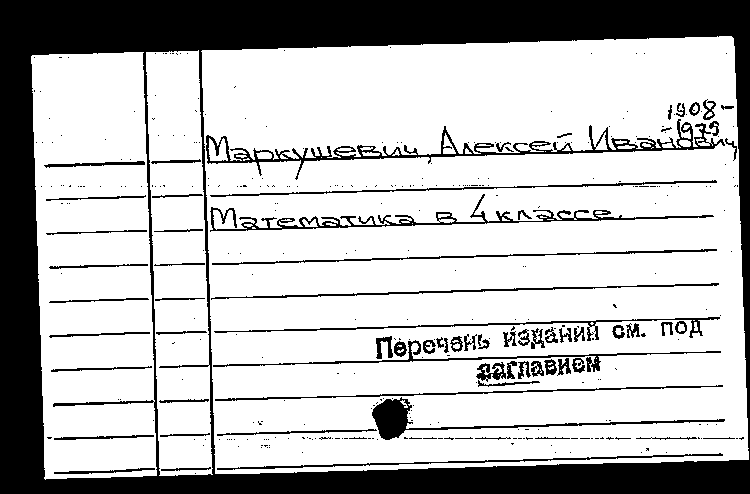 1908-
1979
Маркушевич, Алексей Иванович
Математика в 4 классе.
Перечень изданий см. под
заглавием